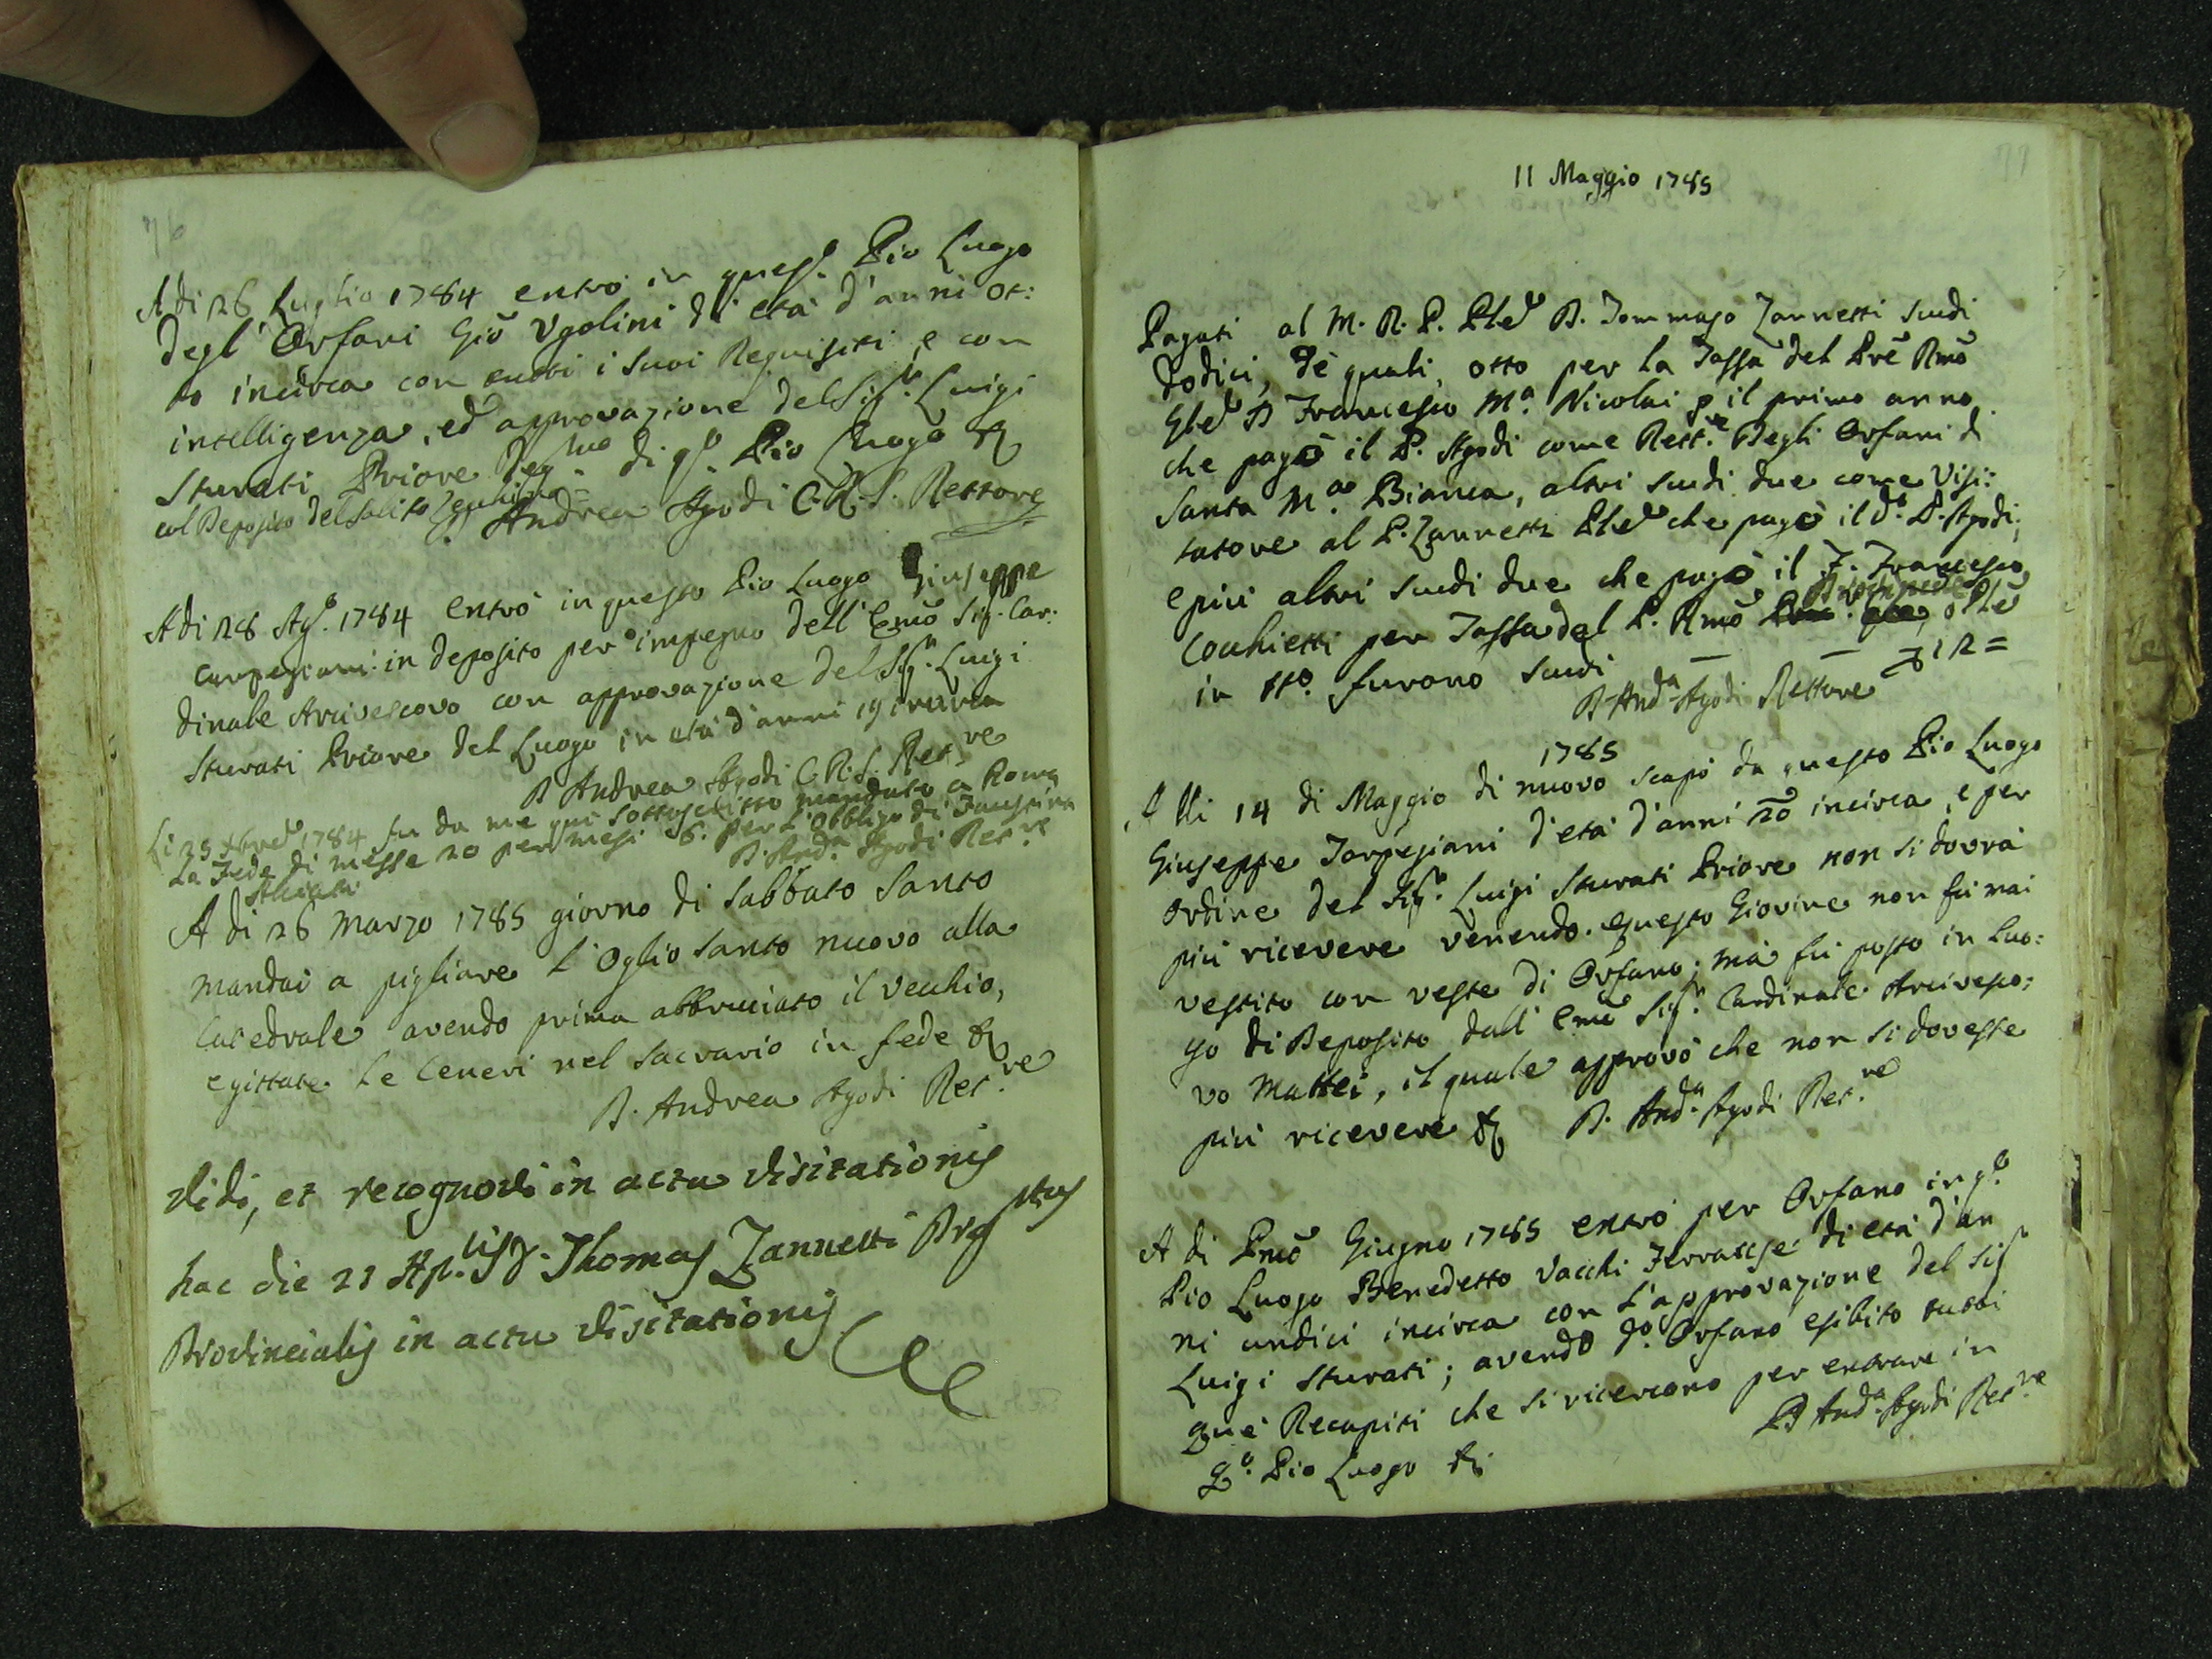 76
A di 26 Luglio 1784 entrò in quest. Pio Luogo
degl' Orfani Giõ Vgolini di età d'anni ot:
to incirca con tutti i suoi Requisiti, e con
intelligenza, ed approvazione del Sig.r Luigi
Sturati Priore Deg.mo di q.o Pio Luogo &
col Deposito del solito Zecchino
D. Andrea Agodi C.R.S. Rettore
A di 28 Ag.o 1784 entrò in questo Pio Luogo Giuseppe
in deposito per impegno dell' Emõ Sig. Car:
dinale Arcivescovo con approvazione del Sig.r Luigi
Sturati Priore del Luogo in età d'anni 19 incirca
D Andrea Agodi C.R.S. Ret.re
Li 25 Xbre 1784 fu da me qui sottoscritto mandato a Roma
La Fede di messe 20 per mesi 6. per l'obbligo di Faustina
D. And.a Agodi Ret.re
A di 26 Marzo 1785 giorno di Sabbato Santo
mandai a pigliare l'Oglio Santo nuovo alla
Catedrale avendo prima abbruciato il vecchio,
e gittate le Ceneri nel Sacrario in fede &
D. Andrea Agodi Ret.re
Vidi, et recognovi in actu visitationis
hac die 21 Ap.lis D. Thomas Zannetti Prep.tus
Provincialis in actu visitationis
77
11 Maggio 1785
Pagati al M. R. P. Ple D. Tommaso Zannetti scudi
dodici, dè quali, otto per la Tassa del Prẽ Rmõ
Gle D Francesco M.a Nicolai p il primo anno
che pagò il P. Agodi come Rett.re degli Orfani di
Santa M.a Bianca, altri scudi due come Visi:
tatore al P. Zannetti Ple che pagò il d.o P. Agodi;
e più altri scudi due che pagò il F. Francesco
Cochietti per Tassa del P. Rmõ o Ple
in tto. furono scudi — — 12 =
D And.a Agodi Rettore
1785
Alli 14 di Maggio di nuovo scapò da questo Pio Luogo
Giuseppe Tarpegiani d'età d'anni 20 incirca, e per
ordine del Sig.r Luigi Sturati Priore non si dovrà
più ricevere venendo. questo Giovine non fù mai
vestito con veste di Orfano; mà fù posto in luo:
go di Deposito dall' Emõ Sig.r Cardinale Arcivesco:
vo Mattei, il quale approvò che non si dovesse
più ricevere & D. And.a Agodi Ret.re
A di Pmõ Giugno 1785 entrò per Orfano in q.o
Pio Luogo Benedetto Vacchi Ferrarese di età d'an
ni undici incirca con l'approvazione del Sig
Luigi Sturati; avendo d.o Orfano esibito tutti
què Recapiti che si ricercono per entrare in
q.o Pio Luogo &
D And.a Agodi Ret.re